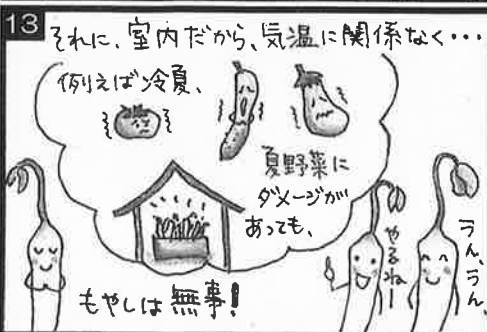 13
それに、室内だから、気温に関係なく・・・
例えば冷夏、
夏野菜に
ダメージが
あっても、
もやしは無事!
やるねー
うん、うん、